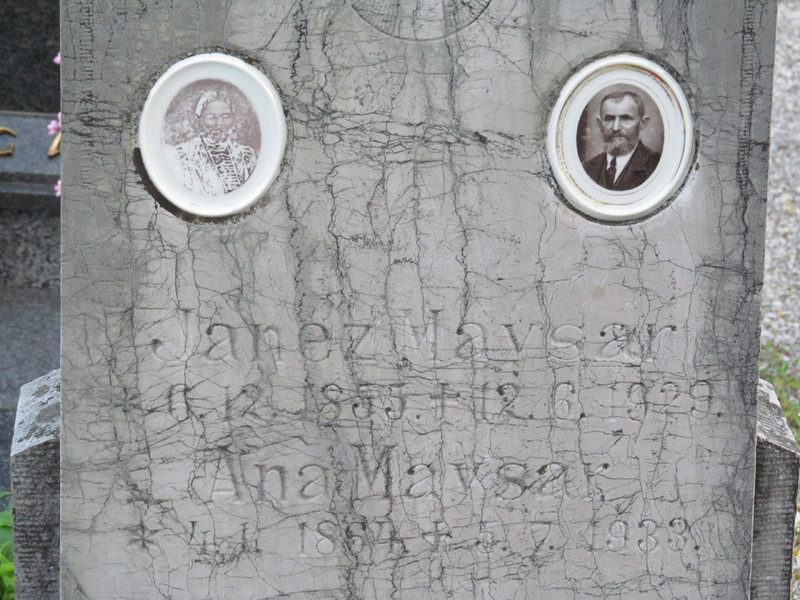 Janez Mavsar
* 6. 12. 1855. + 12. 6. 1929.
Ana Mavsar
* 4. 1. 1864. + 5. 7. 1933.